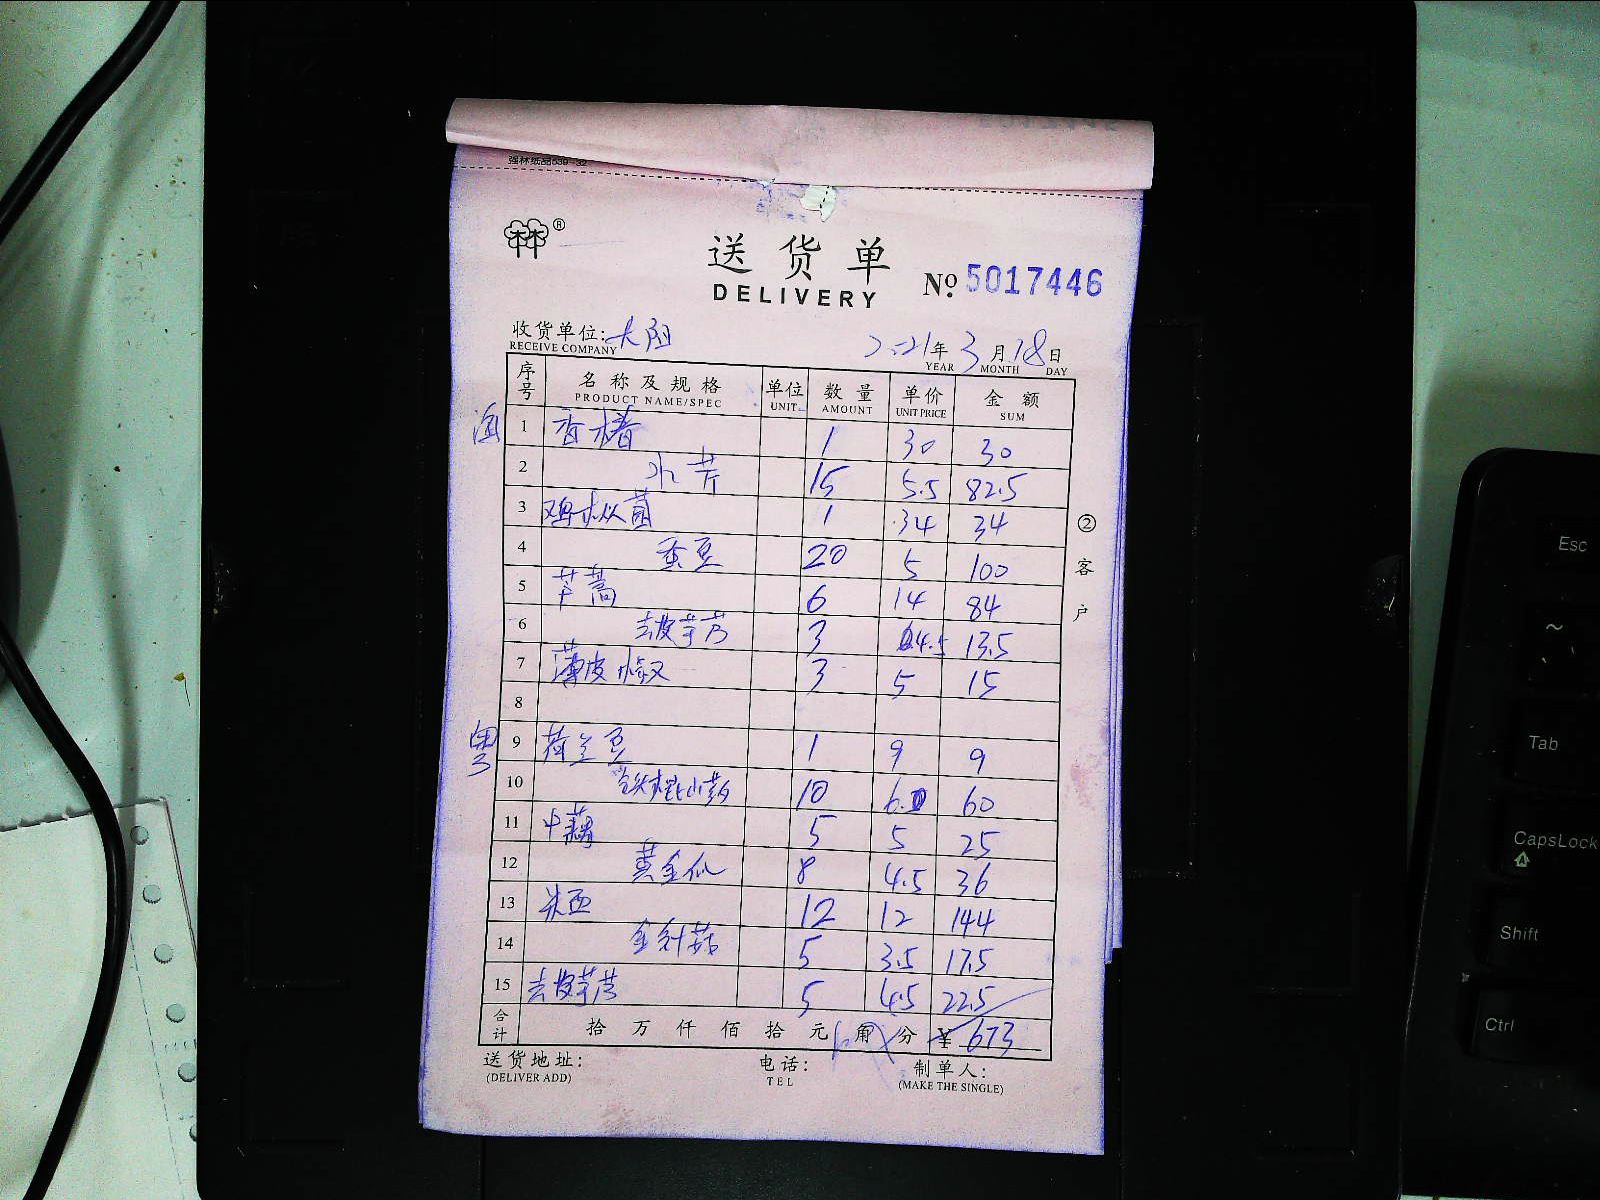 强林纸品539-32
林®
送货单
DELIVERY
№ 5017446
收货单位:
RECEIVE COMPANY
2021年 3月 18日
YEAR MONTH DAY
序号 名称及规格 单位 数量 单价 金额
PRODUCT NAME/SPEC UNIT AMOUNT UNIT PRICE SUM
1 香椿 1 30 30
2 水芹 15 5.5 82.5
3 鸡枞菌 1 34 34
4 蚕豆 20 5 100
5 芦蒿 6 14 84
6 去皮芋艿 3 4.5 13.5
7 薄皮椒 3 5 15
8
粤
9 荷兰豆 1 9 9
10 铁棍山药 10 6.0 60
11 中藕 5 5 25
12 黄金瓜 8 4.5 36
13 12 12 144
14 金针菇 5 3.5 17.5
15 去皮芋艿 5 4.5 22.5
合计 拾 万 仟 佰 拾 元 角 分 ¥ 673
送货地址: 电话: 制单人:
(DELIVER ADD) TEL (MAKE THE SINGLE)
② 客户
Esc
~
Tab
CapsLock
Shift
Ctrl